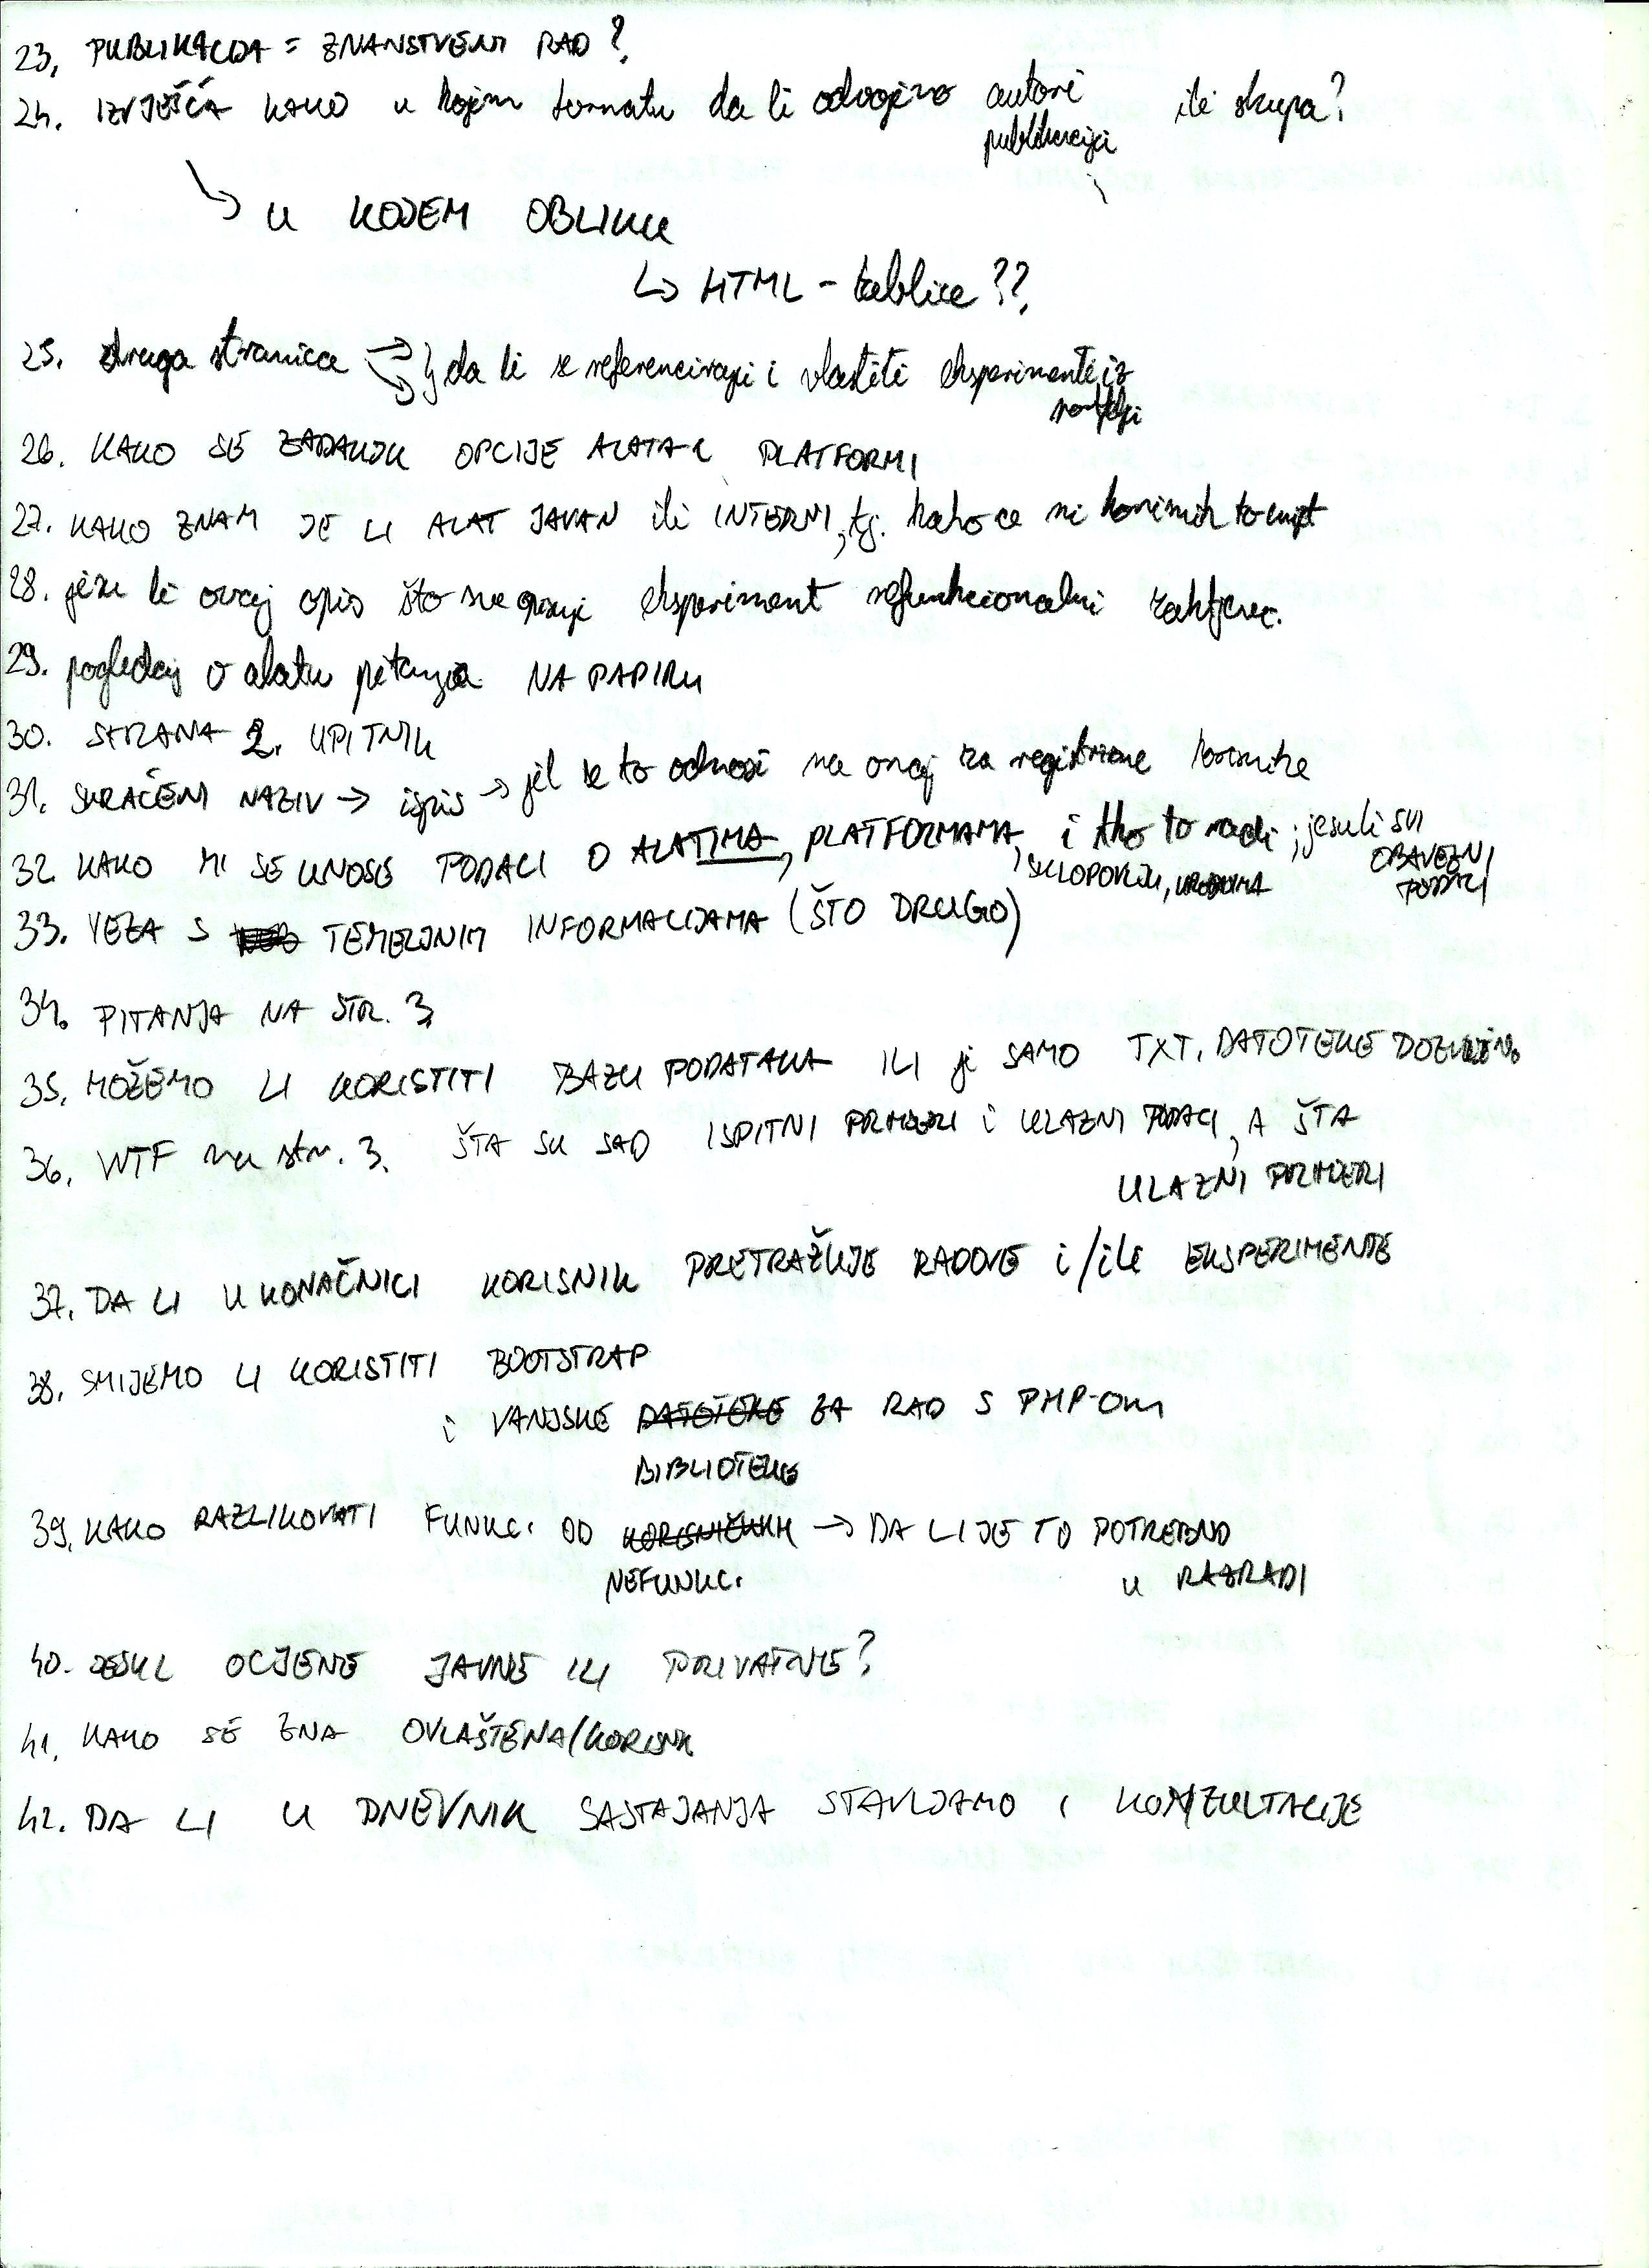 23. PUBLIKACIJA = ZNANSTVENI RAD?
24. IZVJEŠĆA KAKO u kojem formatu da li odvojeno autori ili skupa?
publikacija
↳ U KOJEM OBLIKU
↳ HTML - tablice??
25. druga stranica da li se referenciraju i vlastiti eksperimenti iz
26. KAKO SE ZADAJU OPCIJE ALATA I PLATFORMI
27. KAKO ZNAM JE LI ALAT JAVAN ili INTERNI, tj. kako će mi korisnik to
28. je li ovaj opis što sve opisuje eksperiment nefunkcionalni zahtjevi.
29. pogledaj o alatu pitanja NA PAPIRU
30. STRANA 2. UPITNIK
31. SKRAĆENI NAZIV → ispis → jel se to odnosi na onaj za registrirane korisnike
32. KAKO MI SE UNOSE PODACI O ALATIMA, PLATFORMAMA, i tko to radi; jesu li SVI
SKLOPOVLJU, OBAVEZNI
PODACI
33. VEZA S TEMELJNIM INFORMACIJAMA (ŠTO DRUGO)
34. PITANJA NA STR. 3
35. MOŽEMO LI KORISTITI BAZU PODATAKA ILI je SAMO TXT. DATOTEKE DOZVOLJENO
36. WTF na str. 3. ŠTA SU SAD ISPITNI PRIMJERI i ULAZNI PODACI, A ŠTA
ULAZNI PRIMJERI
37. DA LI U KONAČNICI KORISNIK PRETRAŽUJE RADOVE i/ili EKSPERIMENTE
38. SMIJEMO LI KORISTITI BOOTSTRAP
i VANJSKE DATOTEKE ZA RAD S PHP-OM
BIBLIOTEKE
39. KAKO RAZLIKOVATI FUNKC. OD KORISNIČKIH → DA LI JE TO POTREBNO
NEFUNKC. U RAZRADI
40. JESU L OCJENE JAVNE ILI PRIVATNE?
41. KAKO SE ZNA OVLAŠTENA/KORISNIK
42. DA LI U DNEVNIK SASTAJANJA STAVLJAMO I KONZULTACIJE